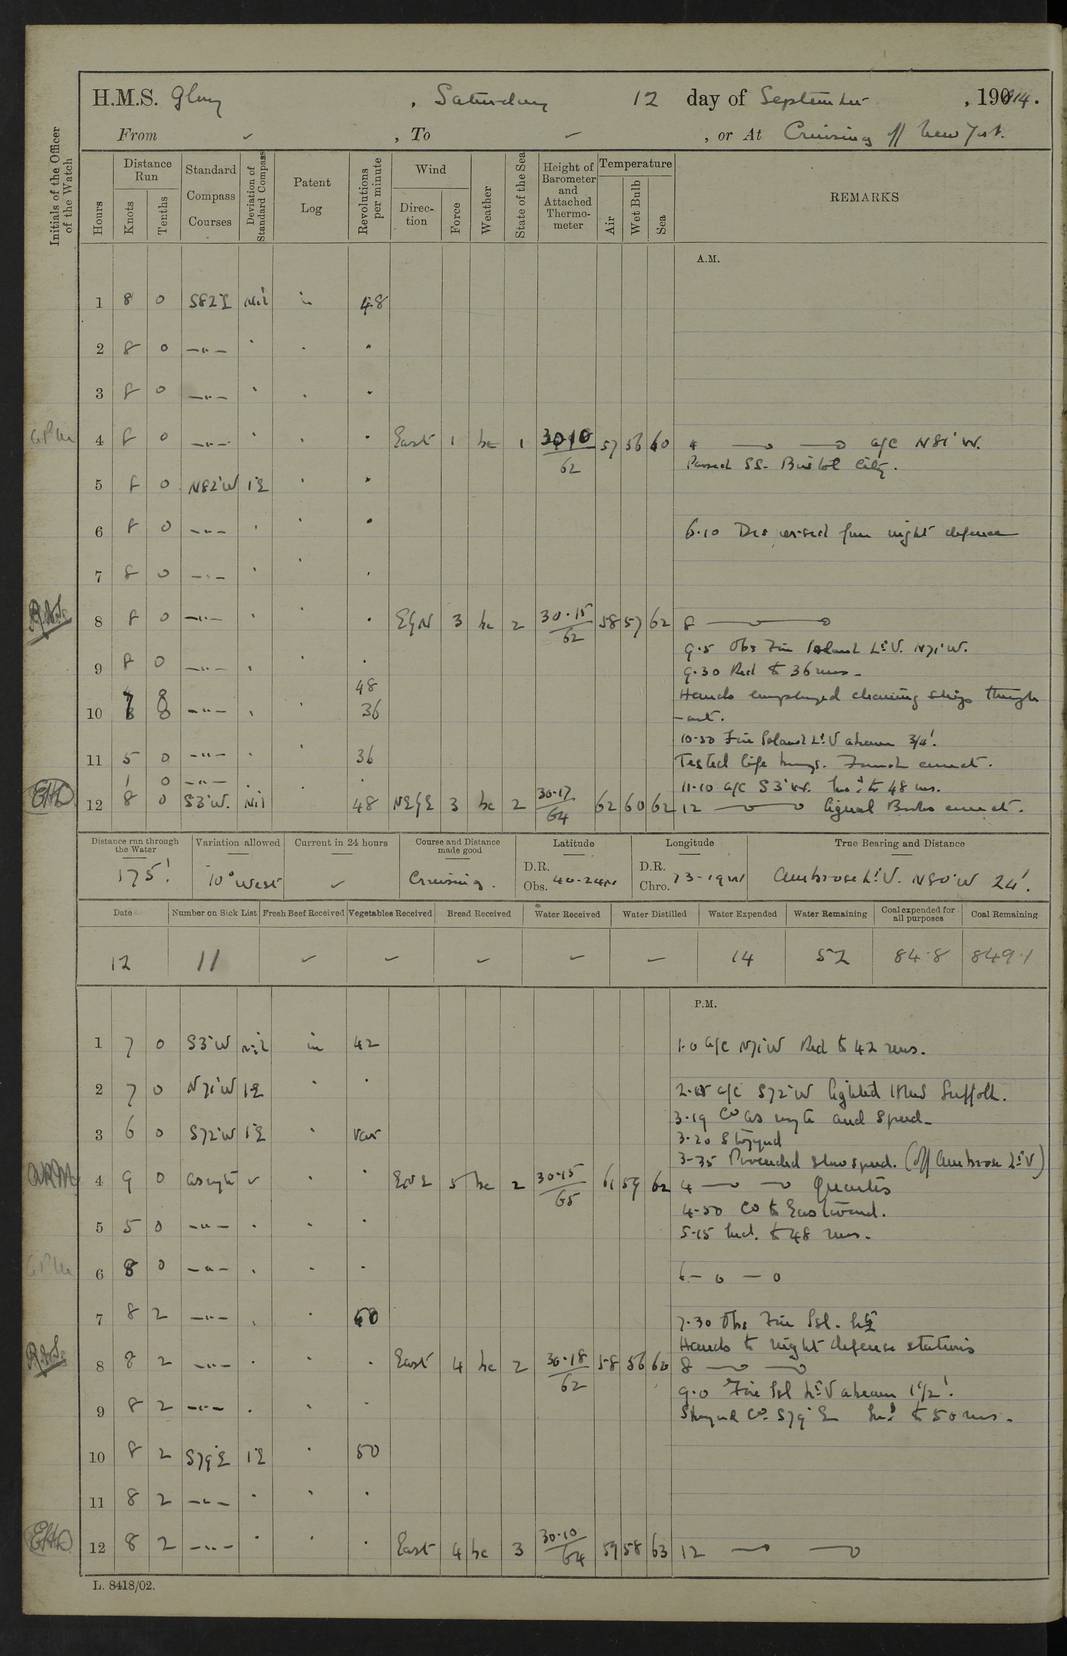 H.M.S. Glory , Saturday 12 day of September , 1914.
From ✓ , To — , or At Cruising off New York.
Initials of the Officer of the Watch
Hours
Distance Run
Knots
Tenths
Standard Compass Courses
Deviation of Standard Compass
Patent Log
Revolutions per minute
Wind
Direction
Force
Weather
State of the Sea
Height of Barometer and Attached Thermometer
Temperature
Air
Wet Bulb
Sea
REMARKS
A.M.
1 8 0 S82°E Nil in 48
2 8 0 —"— " " "
3 8 0 —"— " " "
4 8 0 —"— " " " East 1 bc 1 30·10/62 57 56 60 4 —o —o a/c N81°W.
Passed SS. Bristol City.
5 8 0 N82°W 1°E " "
6 8 0 —"— " " " 6·10 Dispersed from night defence
7 8 0 —"— " "
8 8 0 —"— " " " EbN 3 bc 2 30·15/62 58 57 62 8 —o —o
9·5 Obs Fire Island Lt V. N71°W.
9 8 0 —"— " " " 9·30 Red to 36 revs.
48
Hands employed cleaning ship through
10 —"— " " 36 -out.
10-50 Fire Island Lt V abeam 3/4'.
11 5 0 —"— " 36 Tested life buoys. Found correct.
1 0 —"— 11-10 a/c S3°W. Incd to 48 revs.
12 8 0 S3°W. Nil 48 NEbE 3 bc 2 30·17/64 62 60 62 12 —o —o Signal Books correct.
Distance run through the Water
Variation allowed
Current in 24 hours
Course and Distance made good
Latitude
Longitude
True Bearing and Distance
175' 10° West ✓ Cruising. D.R. Obs. 40-24N D.R. Chro. 73-19W Ambrose Lt V. N80°W 24'.
Date Number on Sick List Fresh Beef Received Vegetables Received Bread Received Water Received Water Distilled Water Expended Water Remaining Coal expended for all purposes Coal Remaining
12 11 — — — — — 14 52 84·8 849·1
P.M.
1 7 0 S3°W Nil in 42 1·0 a/c N71°W Red to 42 revs.
2 7 0 N71°W 1°E " " 2·15 a/c S72°W Sighted HMS Suffolk.
3·19 Co as reqte and speed.
3 6 0 S72°W 1°E " var 3·20 Stopped
3-35 Proceeded slow speed. (off Ambrose Lt V)
4 9 0 as reqte ✓ " " 5 bc 2 30·15/65 61 59 62 4 —o —o Quarters
4-50 Co to Eastward.
5 5 0 —"— " " " 5·15 Incd. to 48 revs.
6 8 0 —"— " " " 6 —o —o
7 8 2 —"— " " 7·30 Obs Fire Isl. Lt
Hands to night defence stations
8 8 2 —"— " " " East 4 bc 2 30·18/62 58 56 60 8 —o —o
9·0 Fire Isl Lt V abeam 1 1/2'.
9 8 2 —"— " " " Co. S79°E Incd to 50 revs.
10 8 2 S79°E 1°E " 50
11 8 2 —"— " " "
12 8 2 —"— " " East 4 bc 3 30·10/64 59 58 63 12 —o —o
L. 8418/02.